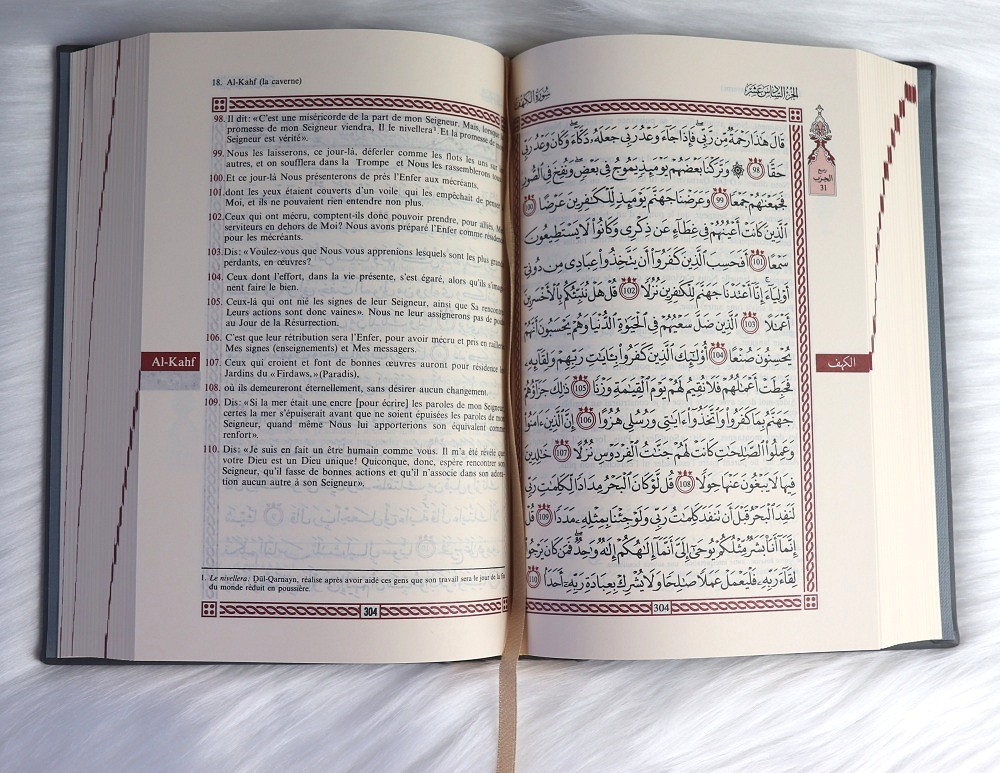 18. Al-Kahf (la caverne)
98. Il dit: «C'est une miséricorde de la part de mon Seigneur. Mais, lorsque la
promesse de mon Seigneur viendra, Il le nivellera¹. Et la promesse de mon
Seigneur est vérité».
99. Nous les laisserons, ce jour-là, déferler comme les flots les uns sur les
autres, et on soufflera dans la Trompe et Nous les rassemblerons tous.
100. Et ce jour-là Nous présenterons de près l'Enfer aux mécréants,
101. dont les yeux étaient couverts d'un voile qui les empêchait de penser à
Moi, et ils ne pouvaient rien entendre non plus.
102. Ceux qui ont mécru, comptent-ils donc pouvoir prendre, pour alliés, Mes
serviteurs en dehors de Moi? Nous avons préparé l'Enfer comme résidence
pour les mécréants.
103. Dis: «Voulez-vous que Nous vous apprenions lesquels sont les plus grands
perdants, en œuvres?
104. Ceux dont l'effort, dans la vie présente, s'est égaré, alors qu'ils s'imaginent
nent faire le bien.
105. Ceux-là qui ont nié les signes de leur Seigneur, ainsi que Sa rencontre.
Leurs actions sont donc vaines». Nous ne leur assignerons pas de poids
au Jour de la Résurrection.
106. C'est que leur rétribution sera l'Enfer, pour avoir mécru et pris en raillerie
Mes signes (enseignements) et Mes messagers.
107. Ceux qui croient et font de bonnes œuvres auront pour résidence les
Jardins du «Firdaws,» (Paradis),
108. où ils demeureront éternellement, sans désirer aucun changement.
109. Dis: «Si la mer était une encre [pour écrire] les paroles de mon Seigneur,
certes la mer s'épuiserait avant que ne soient épuisées les paroles de mon
Seigneur, quand même Nous lui apporterions son équivalent comme
renfort».
110. Dis: «Je suis en fait un être humain comme vous. Il m'a été révélé que
votre Dieu est un Dieu unique! Quiconque, donc, espère rencontrer son
Seigneur, qu'il fasse de bonnes actions et qu'il n'associe dans son adora-
tion aucun autre à son Seigneur».
1. Le nivellera: Dūl-Qarnayn, réalise après avoir aidé ces gens que son travail sera le jour de la fin
du monde réduit en poussière.
304
Al-Kahf
سُورَةُ الكَهْف
الجُزءُ السَّادِسَ عَشَرَ
قَالَ هَٰذَا رَحْمَةٌ مِّن رَّبِّي فَإِذَا جَاءَ وَعْدُ رَبِّي جَعَلَهُ دَكَّاءَ وَكَانَ وَعْدُ رَبِّي
حَقًّا 98 وَتَرَكْنَا بَعْضَهُمْ يَوْمَئِذٍ يَمُوجُ فِي بَعْضٍ وَنُفِخَ فِي الصُّورِ
فَجَمَعْنَاهُمْ جَمْعًا 99 وَعَرَضْنَا جَهَنَّمَ يَوْمَئِذٍ لِّلْكَافِرِينَ عَرْضًا 100
الَّذِينَ كَانَتْ أَعْيُنُهُمْ فِي غِطَاءٍ عَن ذِكْرِي وَكَانُوا لَا يَسْتَطِيعُونَ
سَمْعًا 101 أَفَحَسِبَ الَّذِينَ كَفَرُوا أَن يَتَّخِذُوا عِبَادِي مِن دُونِي
أَوْلِيَاءَ إِنَّا أَعْتَدْنَا جَهَنَّمَ لِلْكَافِرِينَ نُزُلًا 102 قُلْ هَلْ نُنَبِّئُكُم بِالْأَخْسَرِينَ
أَعْمَالًا 103 الَّذِينَ ضَلَّ سَعْيُهُمْ فِي الْحَيَاةِ الدُّنْيَا وَهُمْ يَحْسَبُونَ أَنَّهُمْ
يُحْسِنُونَ صُنْعًا 104 أُولَٰئِكَ الَّذِينَ كَفَرُوا بِآيَاتِ رَبِّهِمْ وَلِقَائِهِ
فَحَبِطَتْ أَعْمَالُهُمْ فَلَا نُقِيمُ لَهُمْ يَوْمَ الْقِيَامَةِ وَزْنًا 105 ذَٰلِكَ جَزَاؤُهُمْ
جَهَنَّمُ بِمَا كَفَرُوا وَاتَّخَذُوا آيَاتِي وَرُسُلِي هُزُوًا 106 إِنَّ الَّذِينَ آمَنُوا
وَعَمِلُوا الصَّالِحَاتِ كَانَتْ لَهُمْ جَنَّاتُ الْفِرْدَوْسِ نُزُلًا 107 خَالِدِينَ
فِيهَا لَا يَبْغُونَ عَنْهَا حِوَلًا 108 قُل لَّوْ كَانَ الْبَحْرُ مِدَادًا لِّكَلِمَاتِ رَبِّي
لَنَفِدَ الْبَحْرُ قَبْلَ أَن تَنفَدَ كَلِمَاتُ رَبِّي وَلَوْ جِئْنَا بِمِثْلِهِ مَدَدًا 109 قُلْ
إِنَّمَا أَنَا بَشَرٌ مِّثْلُكُمْ يُوحَىٰ إِلَيَّ أَنَّمَا إِلَٰهُكُمْ إِلَٰهٌ وَاحِدٌ فَمَن كَانَ يَرْجُوا
لِقَاءَ رَبِّهِ فَلْيَعْمَلْ عَمَلًا صَالِحًا وَلَا يُشْرِكْ بِعِبَادَةِ رَبِّهِ أَحَدًا 110
304
ربع
الحزب
31
الكهف